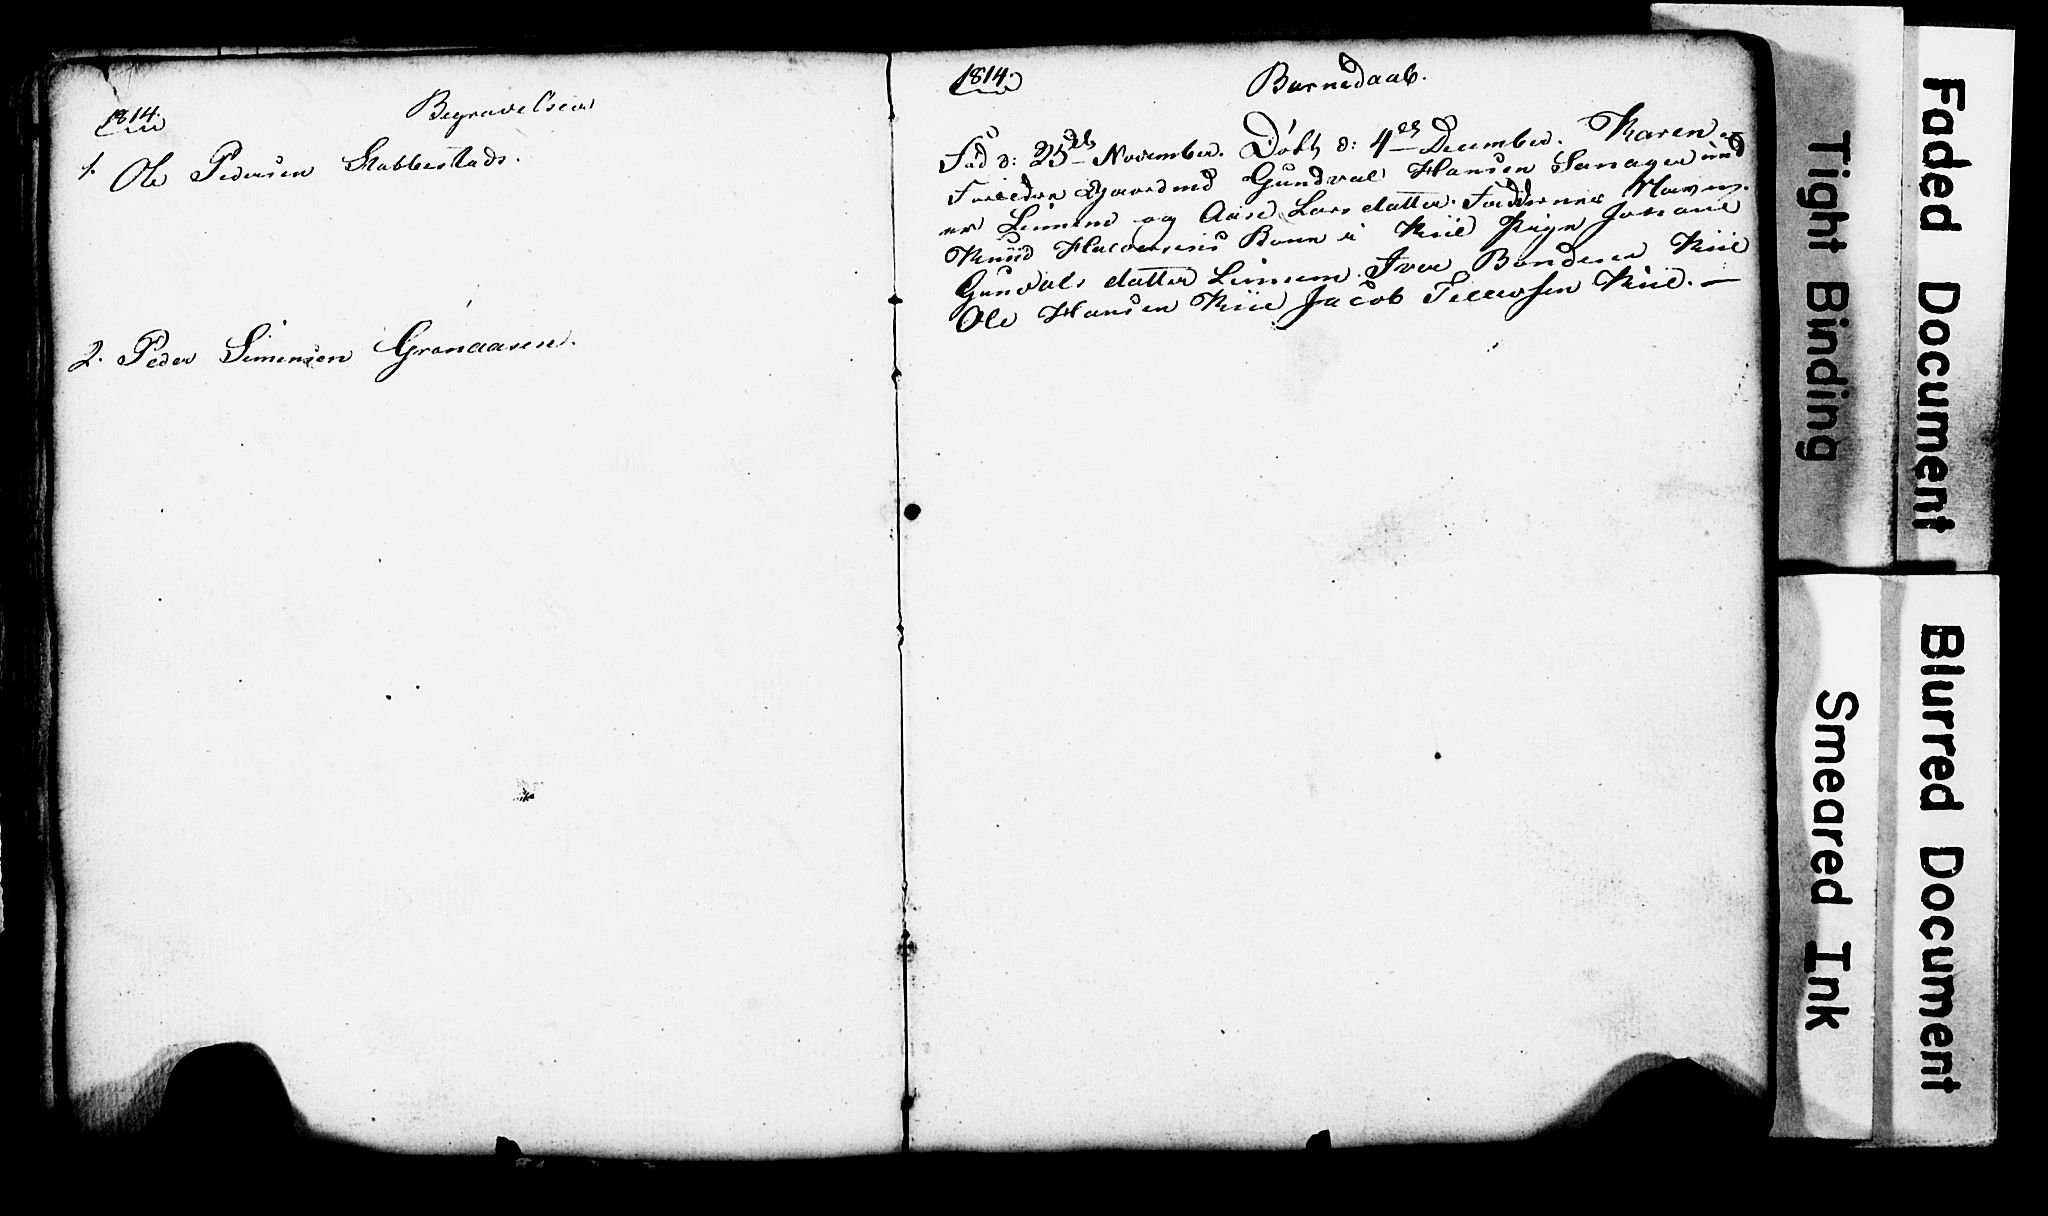 1814. Begravelser
1. Ole Pedersen Skabbestads.
2. Peder Simensen Granaasen.
1814. Barnedaab.
Fød d: 25de November. Døbt d: 4de December. Karen
Foreldre Gaardmd Gundval Hansen
er og Aase Lars datter. Faddernes Navne.
Knud Halvorsens Kone i Kiil Pigen Johane
Gunvals datter Ivor Kiil
Ole Hansen Kiil Jacob Kiil. —
Faded Document
Tight Binding
Blurred Document
Smeared Ink